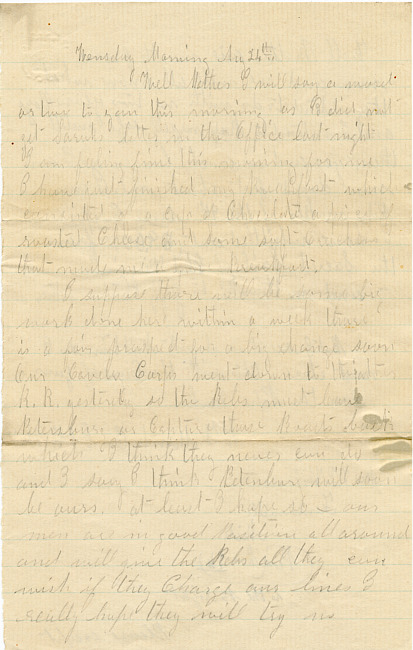 Wensday Morning Aug 24th
Well Mother I will say a word
or two to you this morning. as I did not
get Sarahs letter in the Office last night
I am feeling fine this morning for me
I have just finished my breakfast which
consisted of a cup of Chocolate a piece of
roasted Cheese and some soft Crackers
that made me a breakfast.
I suppose there will be some big
work done here within a week there
is a plan prepared for a big change soon
Our Cavalry Corps went down to
R. R. yesterday so the Rebs must leave
Petersburg or Capture those Roads back
which I think they never can do
and I say I think Petersburg will soon
be ours. at least I hope so. our
men are in good Position all around
and will give the Rebs all they can
wish if they Charge our lines I
really hope they will try us